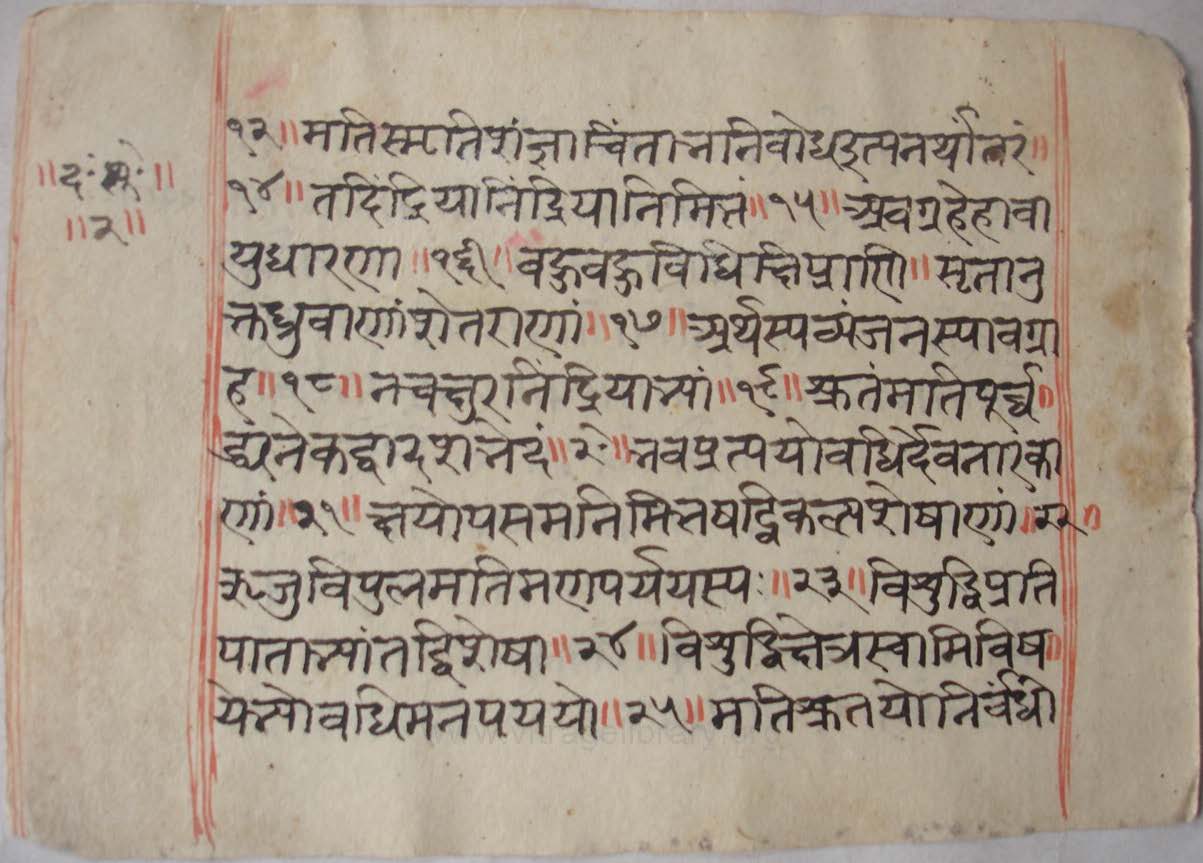 ॥द॰सू॰॥
॥२॥
१२॥मतिस्मृतिशंज्ञाचिंताभनिवोधइत्पनर्थांतरं॥
१४॥तदिंद्रियानिंद्रियानिमित्तं॥१५॥अवग्रहेहावा
युधारणा॥१६॥वहुवहुविधिक्षिप्राणि॥सृतानु
क्तध्रुवाणांशेतराणां॥१७॥अर्थस्पव्यंजनस्पावग्रा
ह॥१८॥नचक्षुरनिंद्रियाभ्यां॥१९॥श्रुतंमतिपूर्व्व॥
द्व्यनेकद्वादशभेदं॥२०॥भवप्रत्पयोवधिर्देवनारका
णां॥२१॥क्षयोपसमनिमित्तषद्विकल्पशेषाणां॥२२॥
ऋजुविपुलमतिमणपर्ययस्पः॥२३॥विशुद्धिप्रति
पाताभ्यांतद्विशेषा॥२४॥विशुद्धिक्षेत्रस्वामिविष॥
येभ्योवधिमनपययो॥२५॥मतिश्रुतयोनिर्वंधो
www.vitragelibrary.org